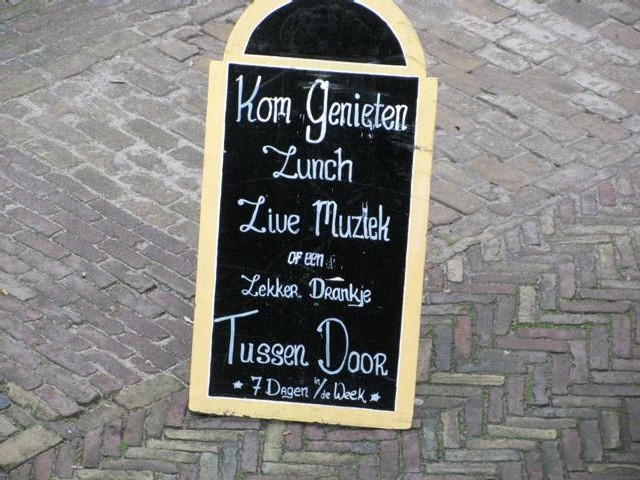 Kom Genieten
Lunch
Live Muziek
OF EEN
Lekker Drankje
Tussen Door
★ 7 Dagen in/de Week ★